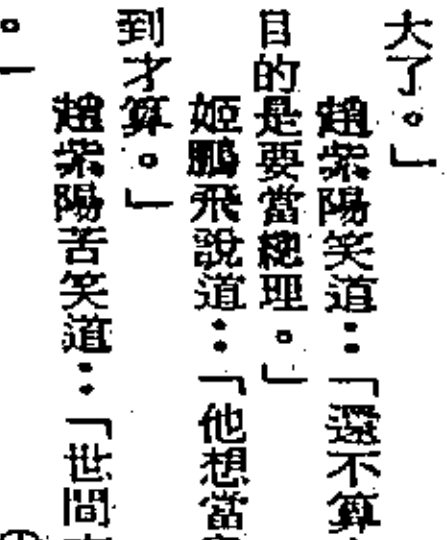 大了。」
趙紫陽笑道：「還不算
目的是要當總理。」
姬鵬飛說道：「他想當
到才算。」
趙紫陽苦笑道：「世間
。」